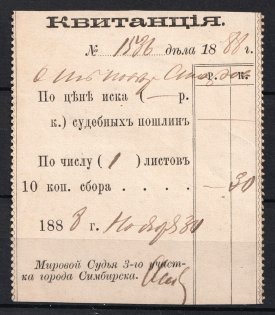 Квитанція.
№ 1596 дѣла 1888 г.
р. к.
По цѣнѣ иска (— р.
к.) судебныхъ пошлин
По числу ( 1 ) листовъ
10 коп. сбора . . . . — 30
1888 г. Ноября 30
Мировой Судья 3-го участ-
ка города Симбирска.